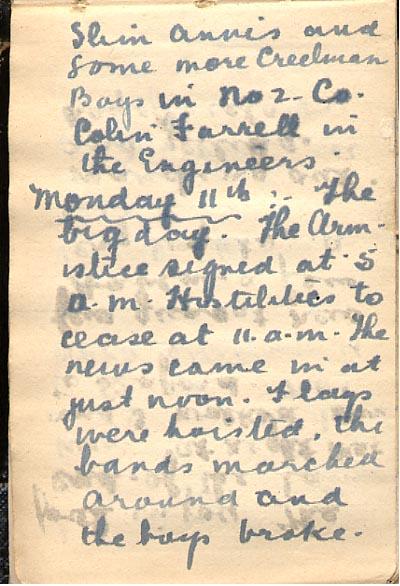 Slim Annis and
some more Creelman
Boys in No 2 - Co.
Colin Farrell in
the Engineers.
Monday 11th :- The
big day. The Arm-
istice signed at 5
a.m. Hostilities to
cease at 11.a.m. The
news came in at
just noon. Flags
were hoisted, the
bands marched
around and
the boys broke.